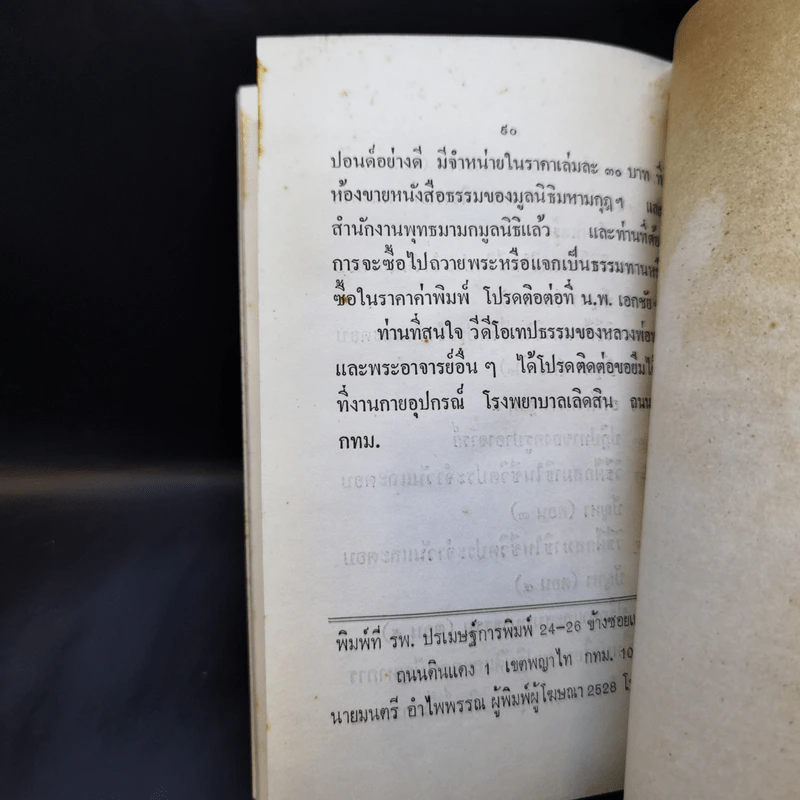 ๙๐
ปอนด์อย่างดี มีจำหน่ายในราคาเล่มละ ๓๐ บาท ที่
ห้องขายหนังสือธรรมของมูลนิธิมหามกุฎฯ และ
สำนักงานพุทธมามกมูลนิธิแล้ว และท่านที่ต้อ
การจะซื้อไปถวายพระหรือแจกเป็นธรรมทานหรื
ซื้อในราคาค่าพิมพ์ โปรดติอต่อที่ น.พ. เอกชัย
ท่านที่สนใจ วีดีโอเทปธรรมของหลวงพ่อ
และพระอาจารย์อื่น ๆ ได้โปรดติดต่อขอยืมไ
ที่งานกายอุปกรณ์ โรงพยาบาลเลิดสิน ถนน
กทม.
พิมพ์ที่ รพ. ปรเมษฐ์การพิมพ์ 24-26 ข้างซอย
ถนนดินแดง 1 เขตพญาไท กทม. 10
นายมนตรี อำไพพรรณ ผู้พิมพ์ผู้โฆษณา 2528 โ